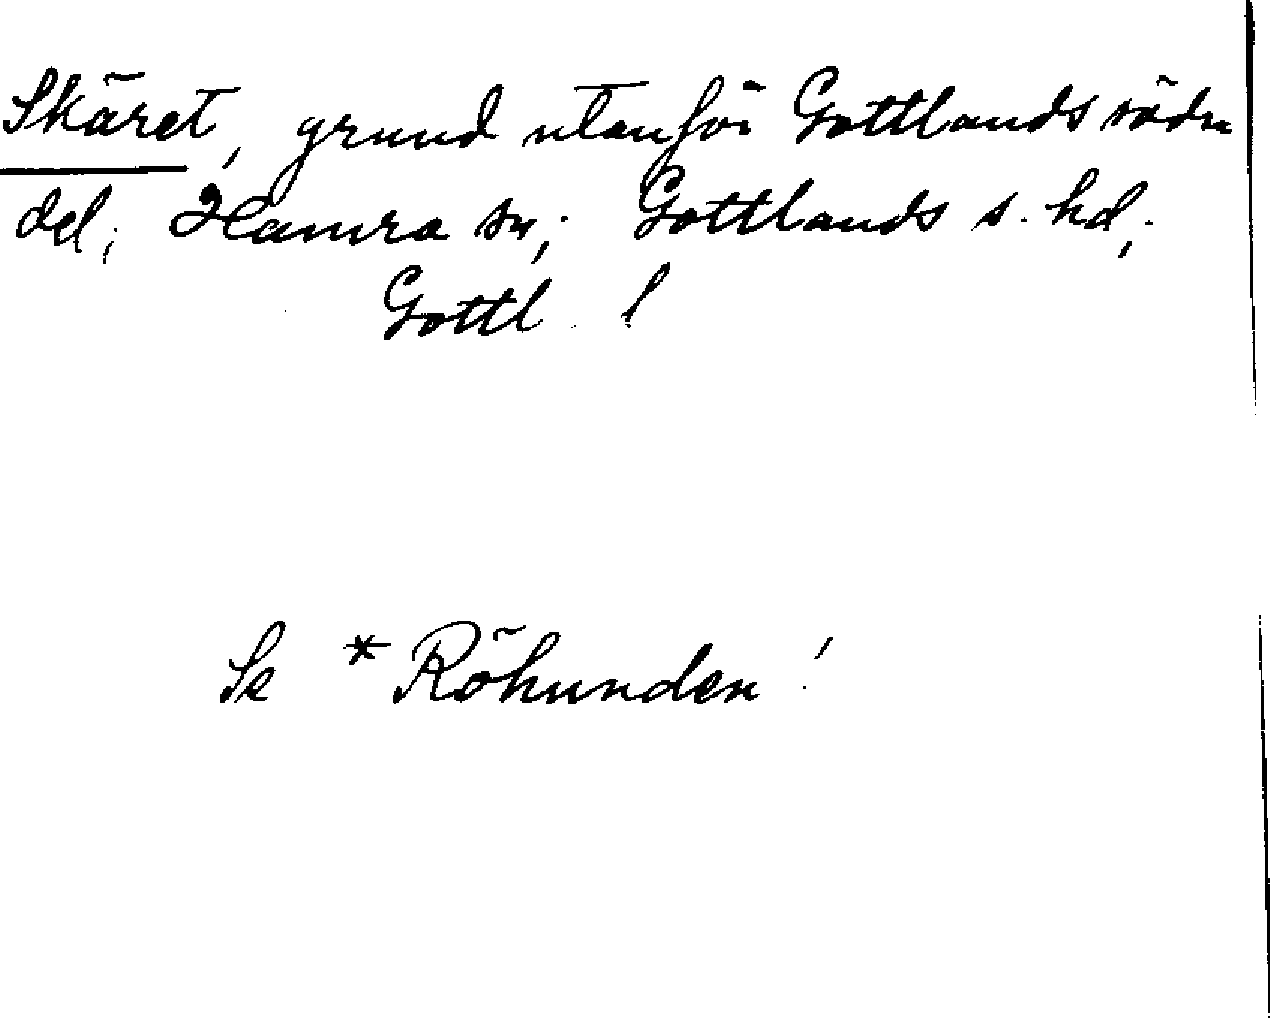 Skäret, grund utanför Gottlands södra
del; Hamra sn; Gottlands s. hd;
Gottl. l
Se *Röhunden!